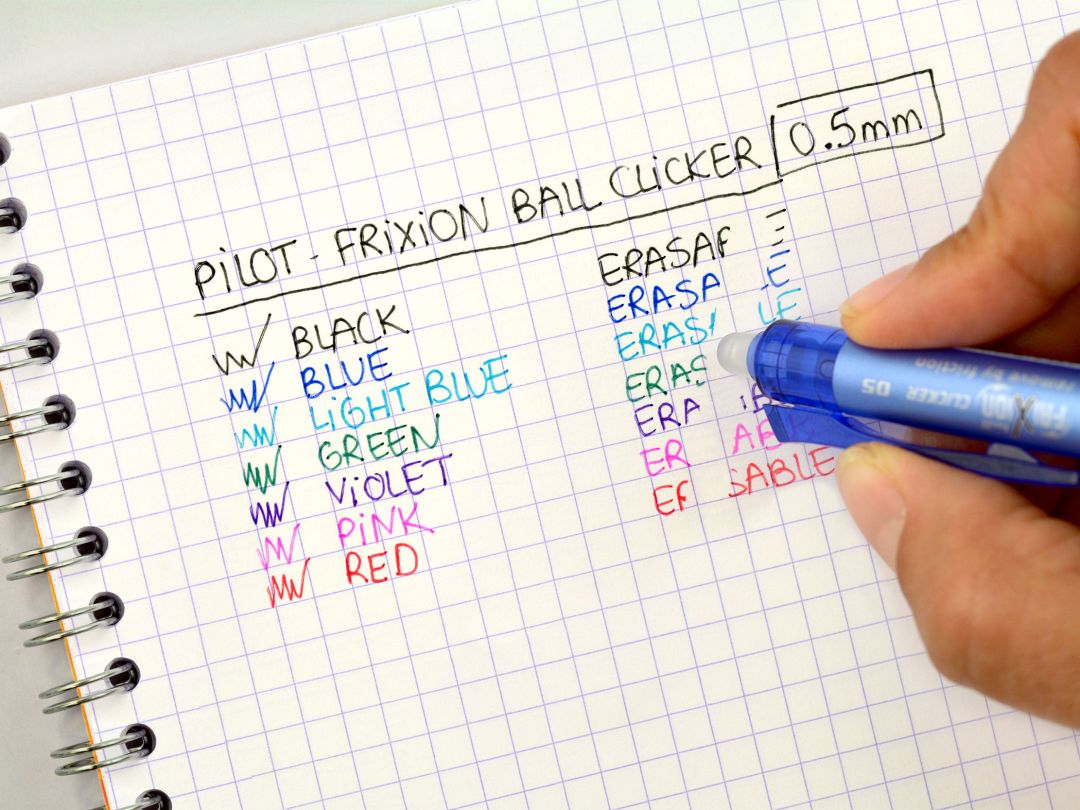 PiLOT - FRiXiON BALL CLiCKER 0.5mm
BLACK
BLUE
LiGHT BLUE
GREEN
ViOLET
PiNK
RED
ERASA
ERASA E
ERAS LE
ERAS
ERA
ER AB
ER SABLE
FRiXion CLICKER 05
Removes by friction